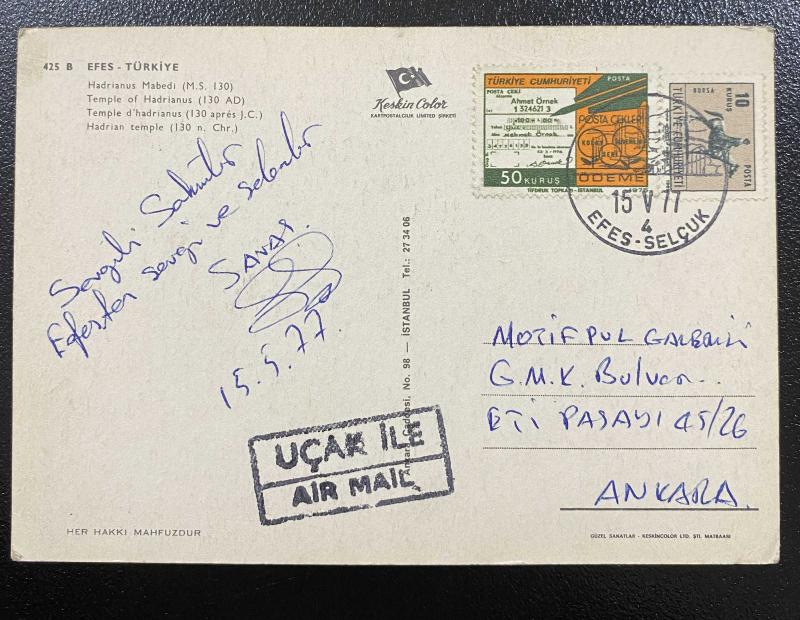 425 B EFES - TÜRKİYE
Hadrianus Mabedi (M.S. 130)
Temple of Hadrianus (130 AD)
Temple d'hadrianus (130 aprés J.C.)
Hadrian temple (130 n. Chr.)
Keskin Color
KARTPOSTALCILIK LIMITED ŞİRKETİ
TÜRKİYE CUMHURİYETİ POSTA
POSTA ÇEKİ
Ahmet Örnek
1324621 3
Mehmet Örnek
POSTA ÇEKLERİ
KOLAY
ÖDEME
50 KURUŞ
TİFDRUK TOPKAPI-İSTANBUL 1975
BURSA
10
KURUŞ
TÜRKİYE CUMHURİYETİ
POSTA
15 V 77
4
EFES-SELÇUK
Sevgili
Efesten sevgi ve selamlar
SAVAŞ
15.5.77.
No. 98 — İSTANBUL Tel.: 27 34 06
UÇAK İLE
AIR MAIL
MOTİF PUL GALERİSİ
G.M.K. Bulvarı
ETİ PASAJI 45/26
ANKARA.
HER HAKKI MAHFUZDUR
GÜZEL SANATLAR - KESKİNCOLOR LTD. ŞTİ. MATBAASI